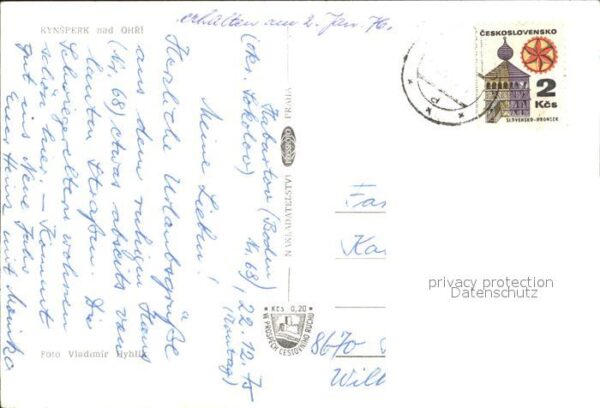 erhalten am 2. Jan. 76.
KYNŠPERK nad OHŘÍ
ČESKOSLOVENSKO
2
Kčs
SLOVENSKO-HRONSEK
Habartov (Boden)
(okr. Sokolov) Nr. 68, 22.12.75
(Montag)
Meine Lieben!
Herzliche Urlaubsgrüße
aus dem ruhigen Haus
(Nr. 68) etwas abseits von
lauten Straßen. Die
Schwiegereltern wohnen
schön hier. – Kommt
gut ins Neue Jahr
Euer Heinz mit Monika
Foto Vladimír Hyhlík
NAKLADATELSTVÍ PRAHA
Kčs 0,20
V PROSPĚCH CESTOVNÍHO RUCHU
Fa
Ka
8670
privacy protection
Datenschutz